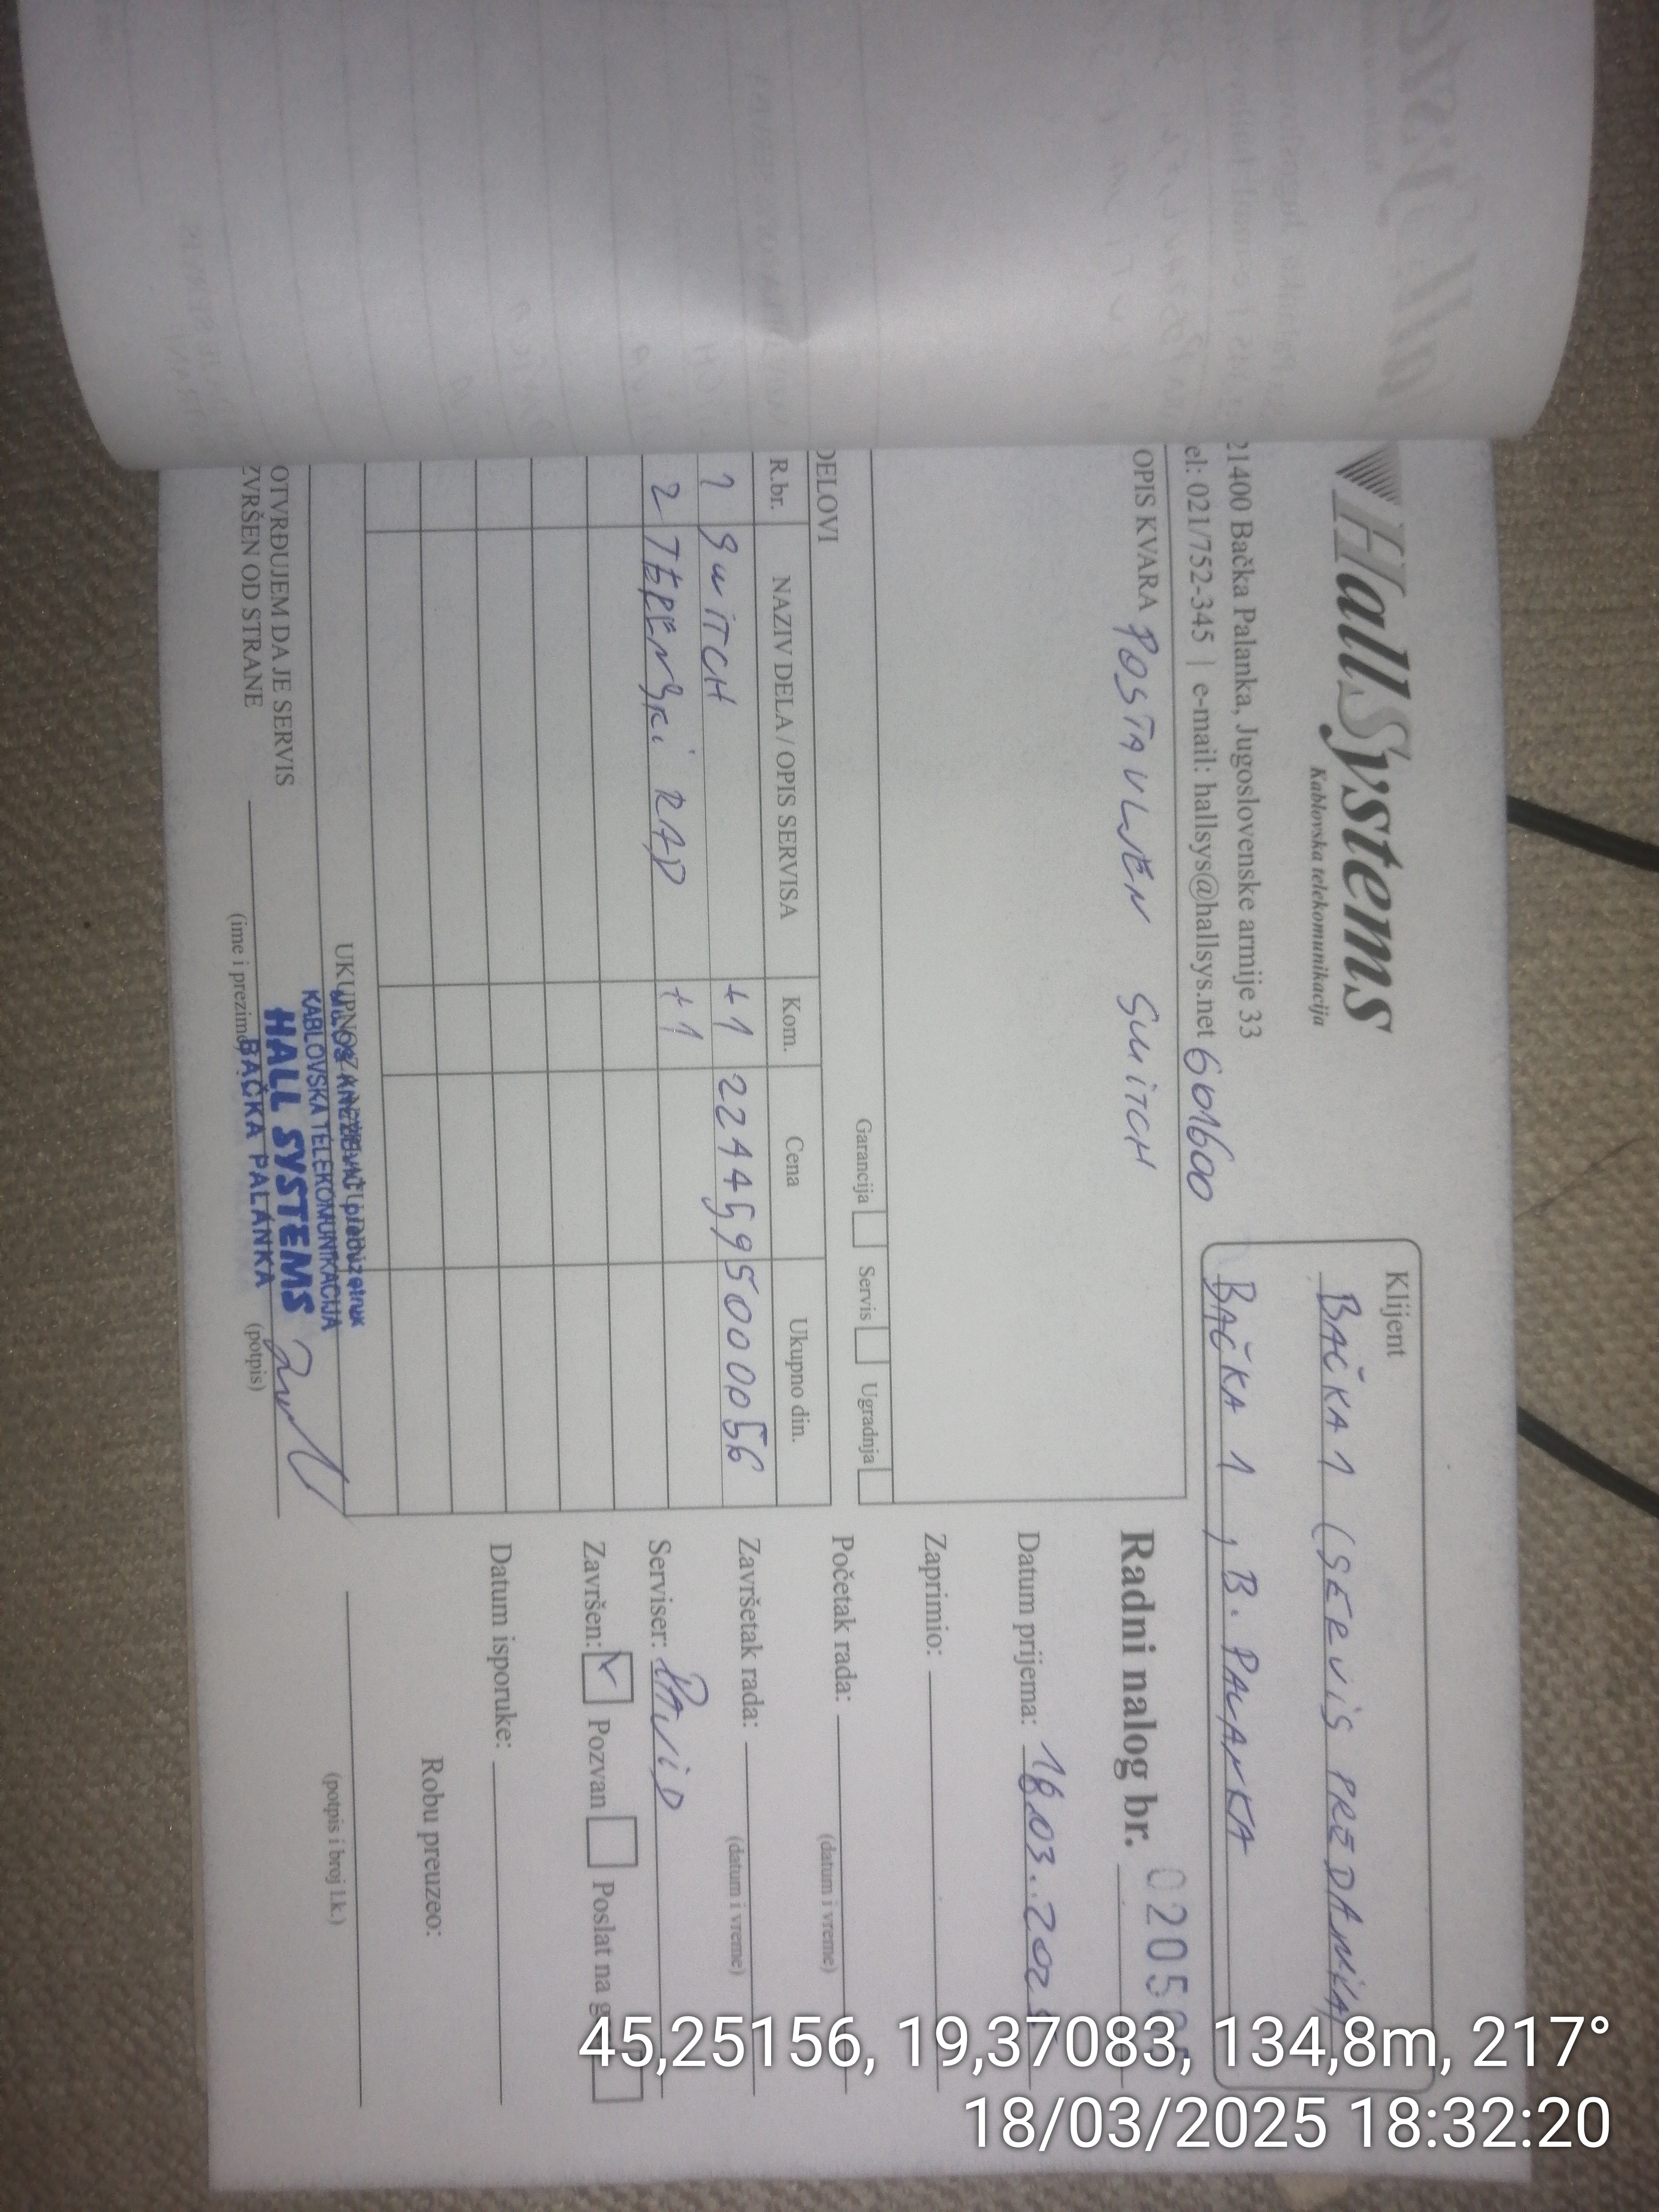 HallSystems
Kablovska telekomunikacija
21400 Bačka Palanka, Jugoslovenske armije 33
el: 021/752-345 | e-mail: hallsys@hallsys.net 601600
Klijent
BAČKA 1 (SERVIS PREDAJNIKA)
BAČKA 1, B. PALANKA
OPIS KVARA POSTAVLJEN SWITCH
Radni nalog br. 0205
Datum prijema: 18.03.202
Zaprimio:
Početak rada:
(datum i vreme)
Završetak rada:
(datum i vreme)
Serviser: DAVID
Završen: Pozvan Poslat na g
Datum isporuke:
Robu preuzeo:
(potpis i broj l.k.)
Garancija Servis Ugradnja
DELOVI
R.br. NAZIV DELA / OPIS SERVISA Kom. Cena Ukupno din.
1 SWITCH +1 2244595000056
2 TERENSKI RAD +1
KABLOVSKA TELEKOMUNIKACIJA
HALL SYSTEMS
BAČKA PALANKA
OTVRĐUJEM DA JE SERVIS
ZVRŠEN OD STRANE
(ime i prezime) (potpis)
45,25156, 19,37083, 134,8m, 217°
18/03/2025 18:32:20